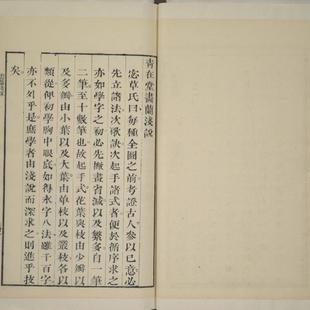 青在堂畫蘭淺說
宓草氏曰每種全圖之前考證古人參以已意必
先立諸法次歌訣次起手諸式者便於循序求之
亦如學字之初必先撇畫省減以及繁多自一筆
二筆至十數筆也故起手式花葉與枝由少瓣以
及多瓣由小葉以及大葉由單枝以及叢枝各以
類從俾初學胸中眼底如得永字八法雖千百字
亦不外乎是應學者由淺說而深求之則進乎技
矣